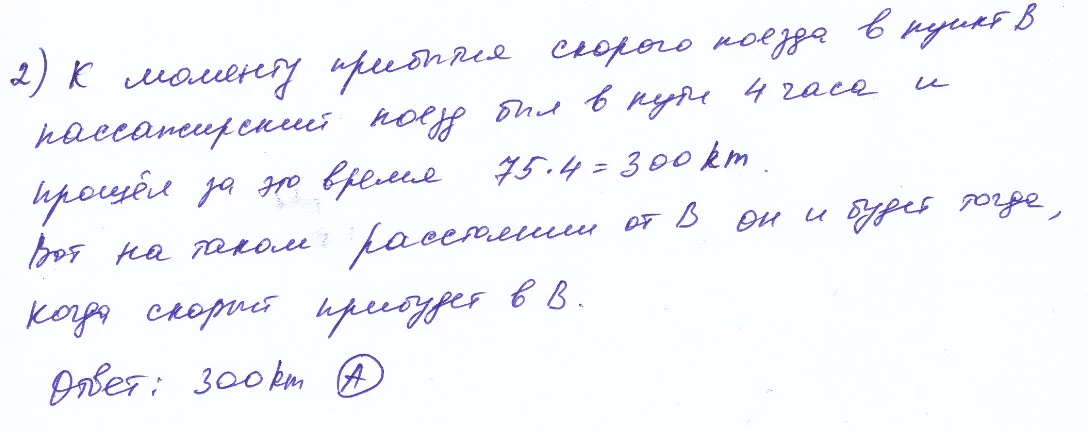 2) К моменту прибытия скорого поезда в пункт В
пассажирский поезд был в пути 4 часа и
прошёл за это время 75·4 = 300 km.
Вот на таком расстоянии от В он и будет тогда,
когда скорый прибудет в В.
Ответ: 300 km А